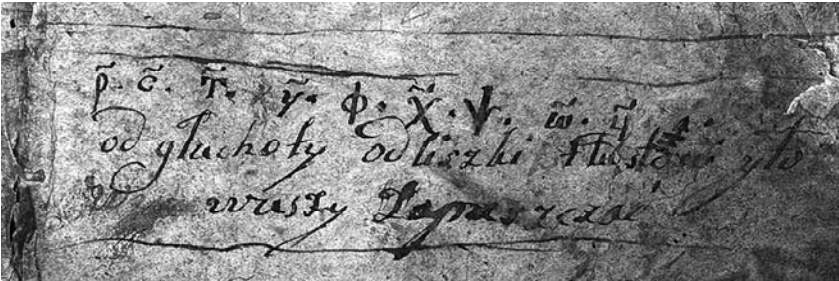 р҃. с҃. т҃. у҃. ф. х҃. ѱ. ѡ҃. ц҃.
od głuchoty od liszki tłustość yto
wuszy Zapuszczać